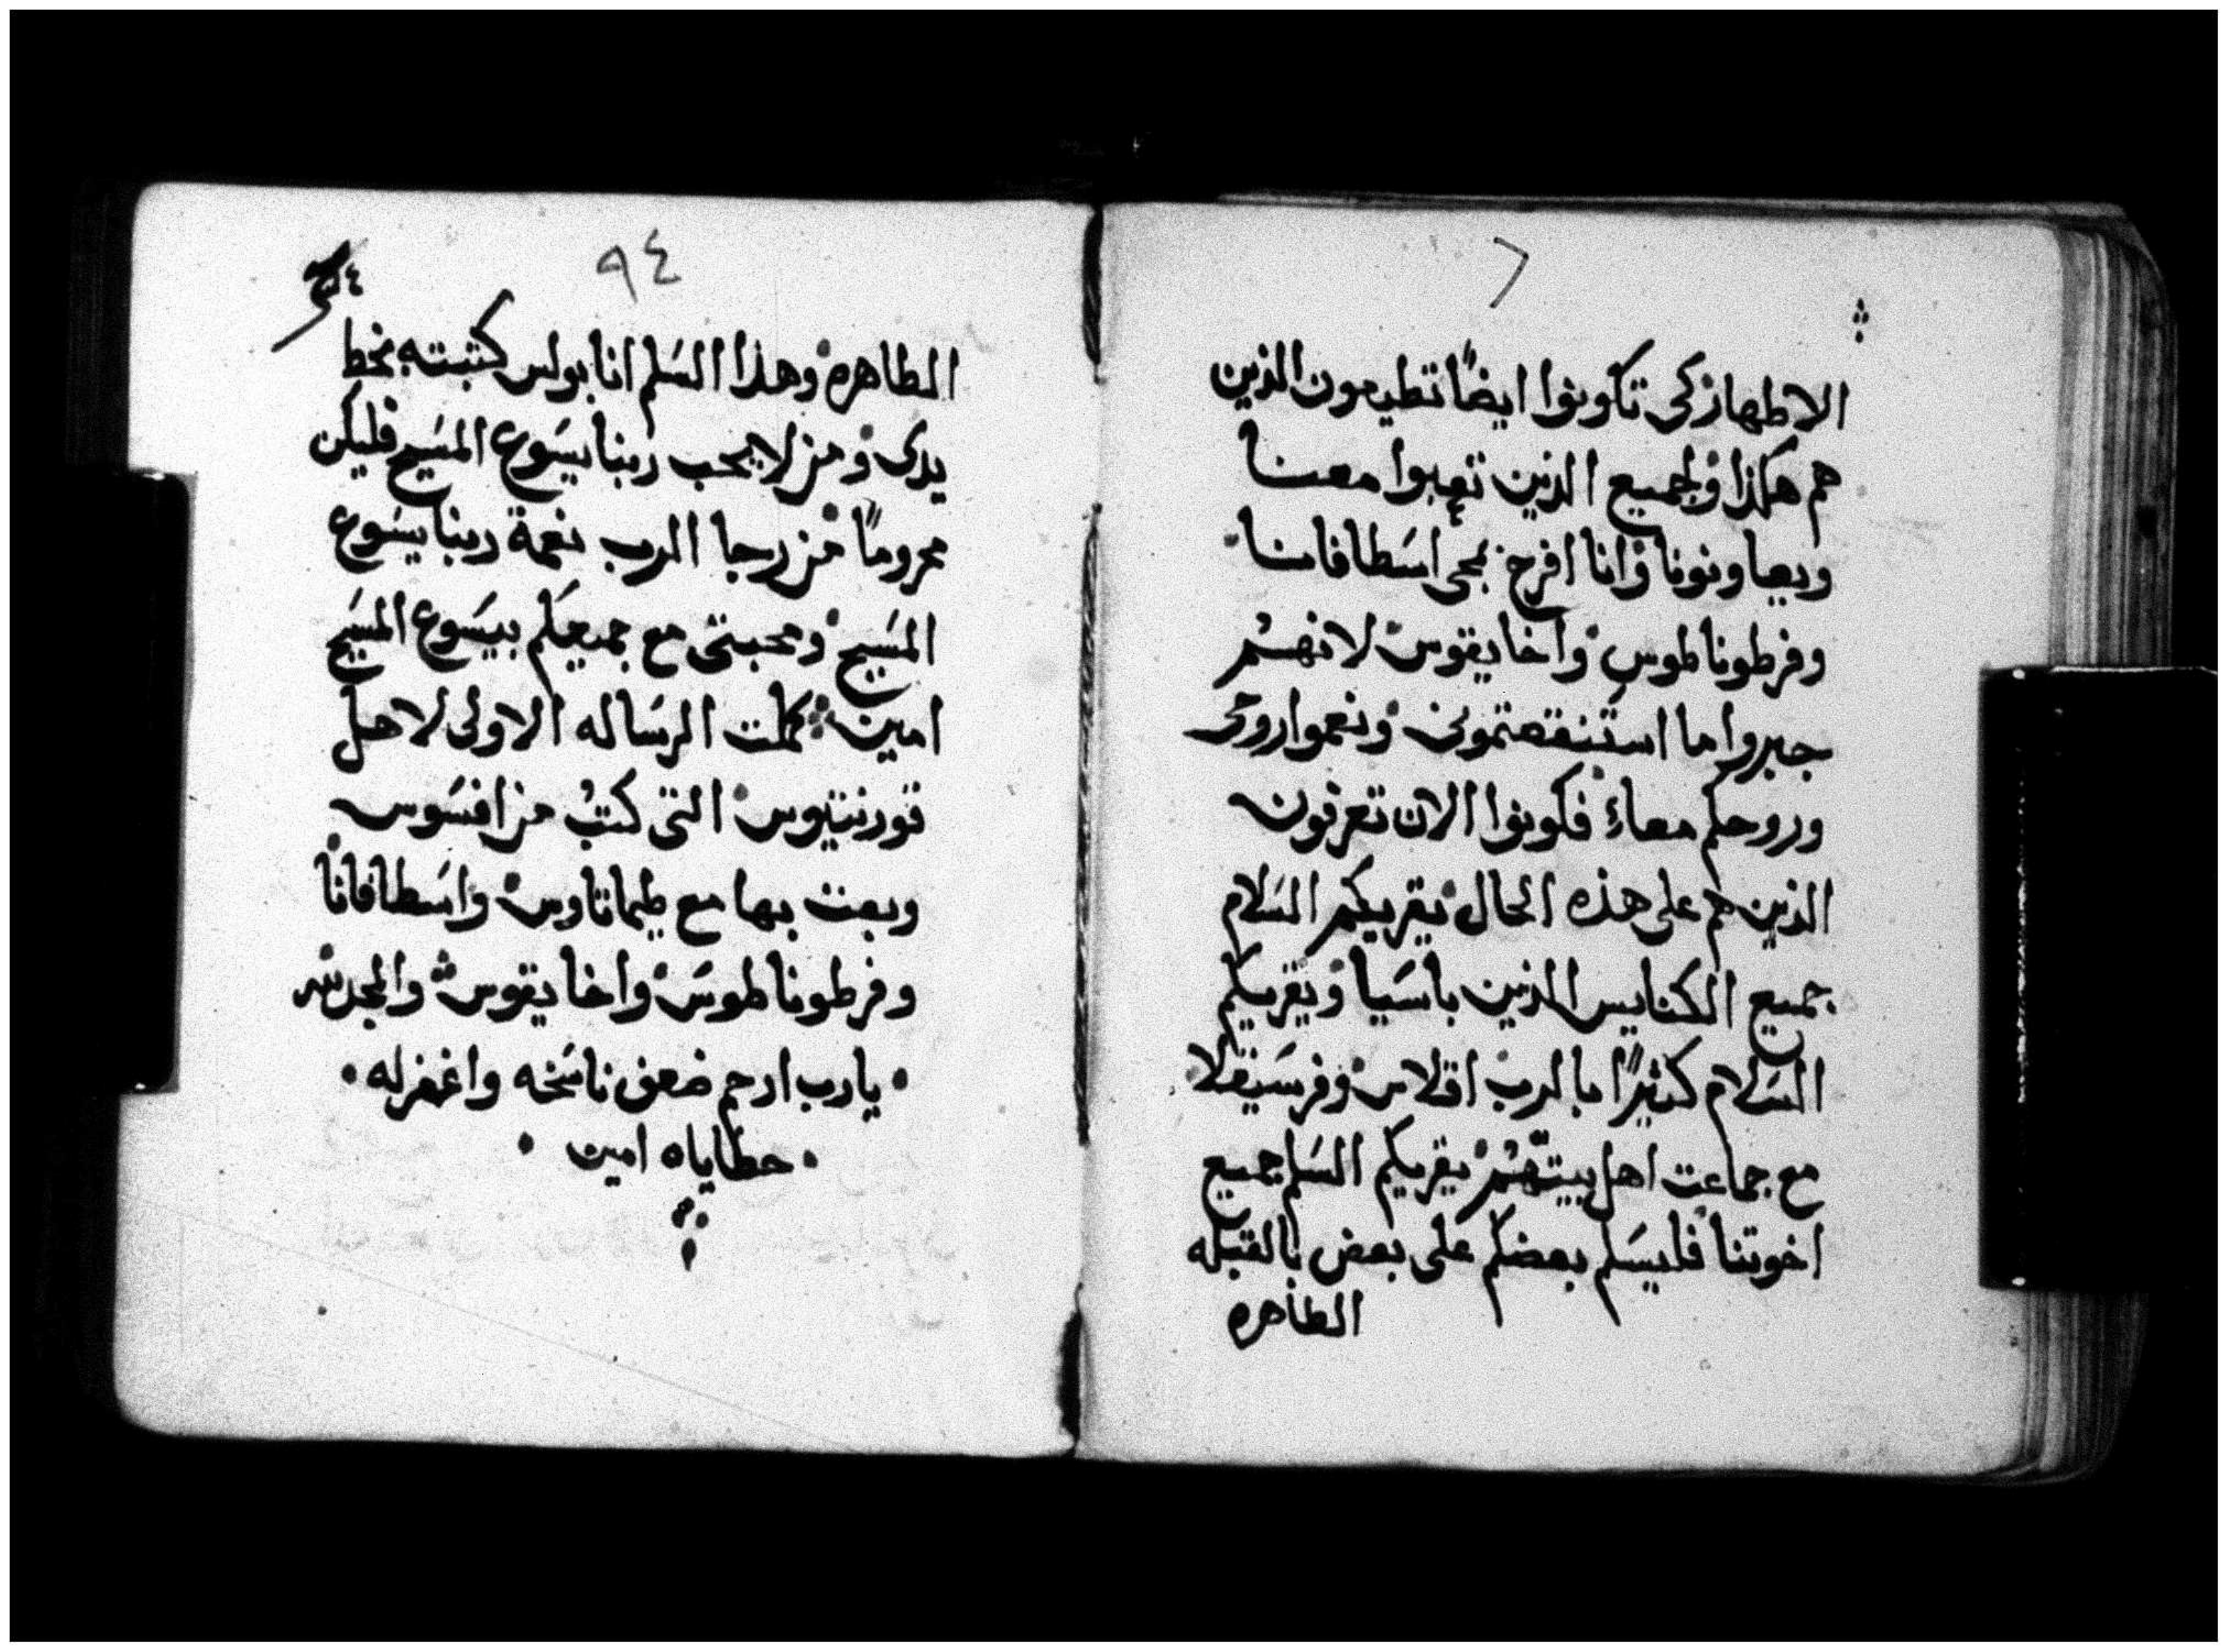 الاطهار كى تكونوا ايضًا تطيعون الذين
هم هكذا ولجميع الذين تعبوا معنا
ويعاونونا وانا افرح بمجى اسطافانا
وفرطوناطوس واخايقوس لانهم
جبروا ما استنقصتمونى ونعموا روحى
وروحكم معاء فكونوا الان تعرفون
الذين هم على هذه الحال يقريكم السَلام
جميع الكنايس الذين باسَيا ويقريكم
السَلام كثيرًا بالرب اقلاس وفرسَيقلا
مع جماعت اهل بيتهم يقريكم السَلم جميع
اخوتنا فليسَلم بعضكم على بعض بالقبله
الطاهره
٩٤
الطاهره وهذا السَلم انا بولس كتبته بخط
يدى ومن لا يحب ربنا يسَوع المسَيح فليكن
محرومًا من رجا الرب نعمة ربنا يسَوع
المسَيح ومحبتى مع جميعكم بيسَوع المسَيح
امين كملت الرسَاله الاولى لاهل
قورنتيوس التى كتب من افسَوس
وبعت بها مع طيماتاوس واسَطافانا
وفرطوناطوسَ واخايقوس والمجد لله
يارب ارحم ضعف ناسَخه واغفر له
خطاياه امين